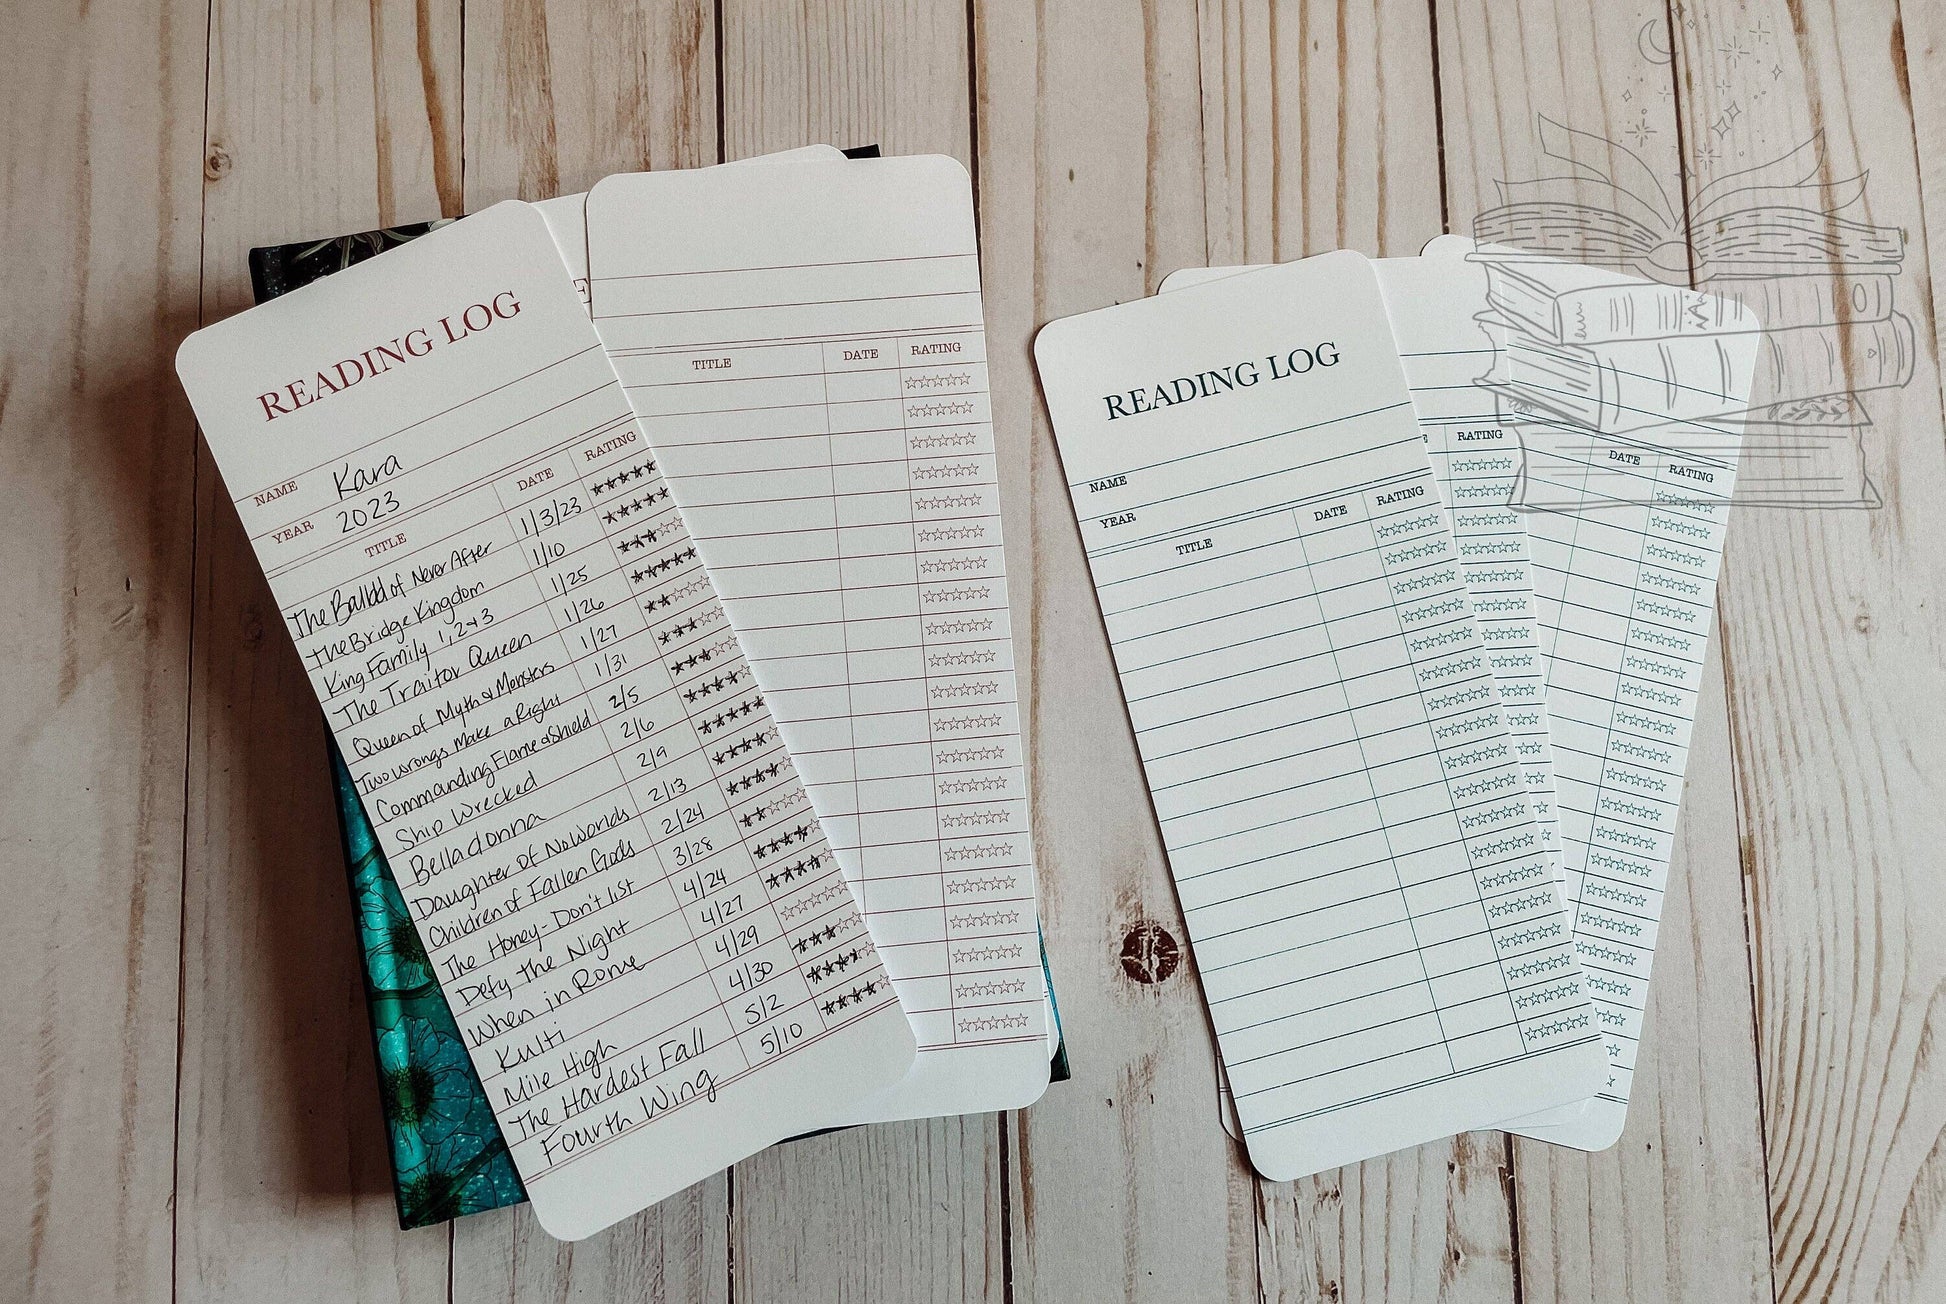 READING LOG
NAME Kara
YEAR 2023
TITLE DATE RATING
The Ballad of Never After 1/3/23
The Bridge Kingdom 1/10
King Family 1, 2+3 1/25
The Traitor Queen 1/26
Queen of Myth & Monsters 1/27
Two Wrongs Make a Right 1/31
Commanding Flame & Shield 2/5
Ship Wrecked 2/6
Belladonna 2/9
Daughter of No Worlds 2/13
Children of Fallen Gods 2/24
The Honey-Don't list 3/28
Defy the Night 4/24
When in Rome 4/27
Kulti 4/29
Mile High 4/30
The Hardest Fall 5/2
Fourth Wing 5/10
TITLE DATE RATING
READING LOG
NAME
YEAR
TITLE DATE RATING
RATING
DATE RATING